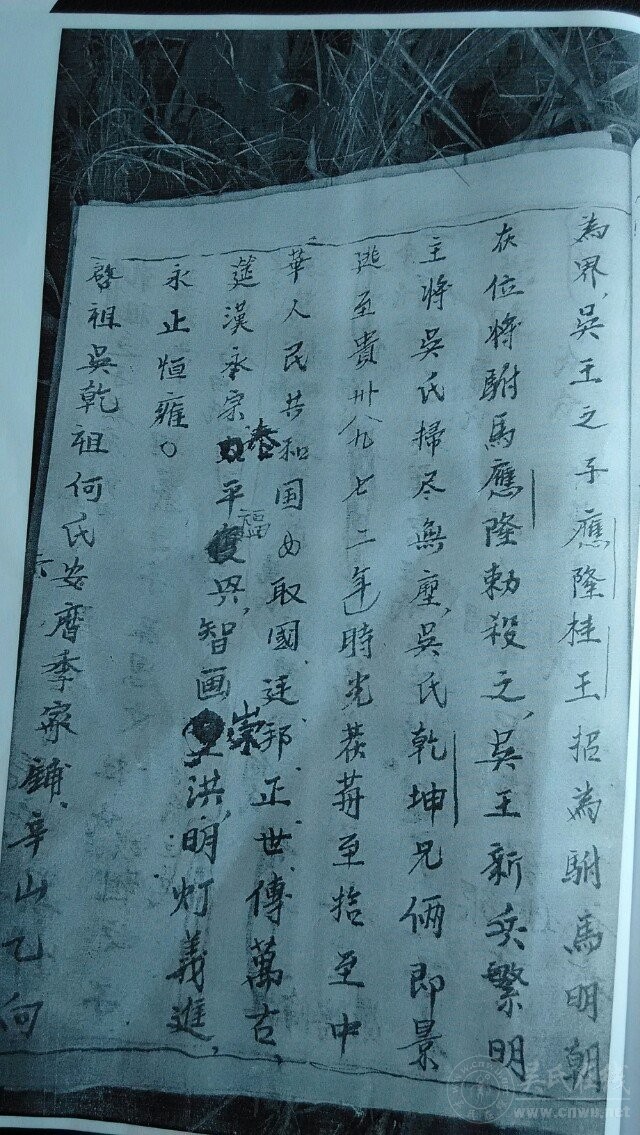 為界,吳王之子應隆桂王招為駙馬明朝
在位将駙馬應隆勅殺之,吳王新兵繁明
主将吳氏掃尽無塵,吳氏乾坤兄俩即景
逃至貴卅八九七二年时光荏苒至拾至中
華人民共和国 取國廷邦正世傳萬古、
莚漢承宗 泰平 福兴,智画 崇洪,明灯義進,
永正恒雍。
啓祖吳乾祖何氏安厝季家鋪、辛山乙向
吴氏在线
www.cnwu.net